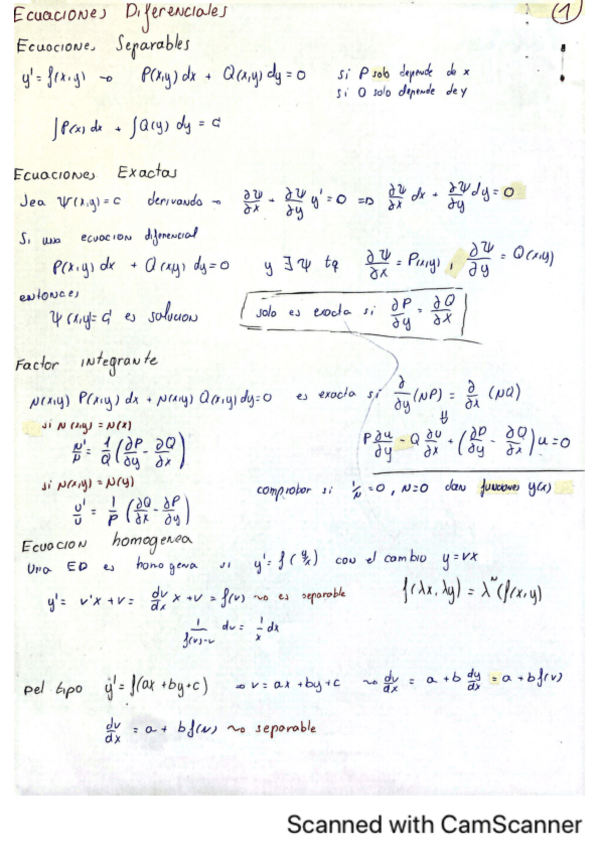 Ecuaciones Diferenciales (1)
Ecuaciones Separables
y' = f(x,y) → P(x,y) dx + Q(x,y) dy = 0 si P solo depende de x
si Q solo depende de y
∫P(x) dx + ∫Q(y) dy = C
Ecuaciones Exactas
Sea Ψ(x,y) = c derivando → ∂Ψ/∂x + ∂Ψ/∂y y' = 0 ⇒ ∂Ψ/∂x dx + ∂Ψ/∂y dy = 0
Si una ecuacion diferencial
P(x,y) dx + Q(x,y) dy = 0 y ∃ Ψ tq ∂Ψ/∂x = P(x,y), ∂Ψ/∂y = Q(x,y)
entonces
Ψ(x,y) = C es solucion solo es exacta si ∂P/∂y = ∂Q/∂x
Factor integrante
μ(x,y) P(x,y) dx + μ(x,y) Q(x,y) dy = 0 es exacta si ∂/∂y (μP) = ∂/∂x (μQ)
⇓
si μ(x,y) = μ(x)
P ∂u/∂y - Q ∂u/∂x + (∂P/∂y - ∂Q/∂x) u = 0
μ'/μ = 1/Q (∂P/∂y - ∂Q/∂x)
si μ(x,y) = μ(y)
comprobar si 1/μ = 0, μ = 0 dan funciones y(x)
u'/u = 1/P (∂Q/∂x - ∂P/∂y)
Ecuacion homogenea
Una ED es homogena si y' = f(y/x) con el cambio y = vx
y' = v'x + v = dv/dx x + v = f(v) → es separable f(λx, λy) = λⁿ(f(x,y)
1/f(v)-v dv = 1/x dx
Del tipo y' = f(ax + by + c) → v = ax + by + c → dv/dx = a + b dy/dx = a + b f(v)
dv/dx = a + b f(v) → separable
Scanned with CamScanner